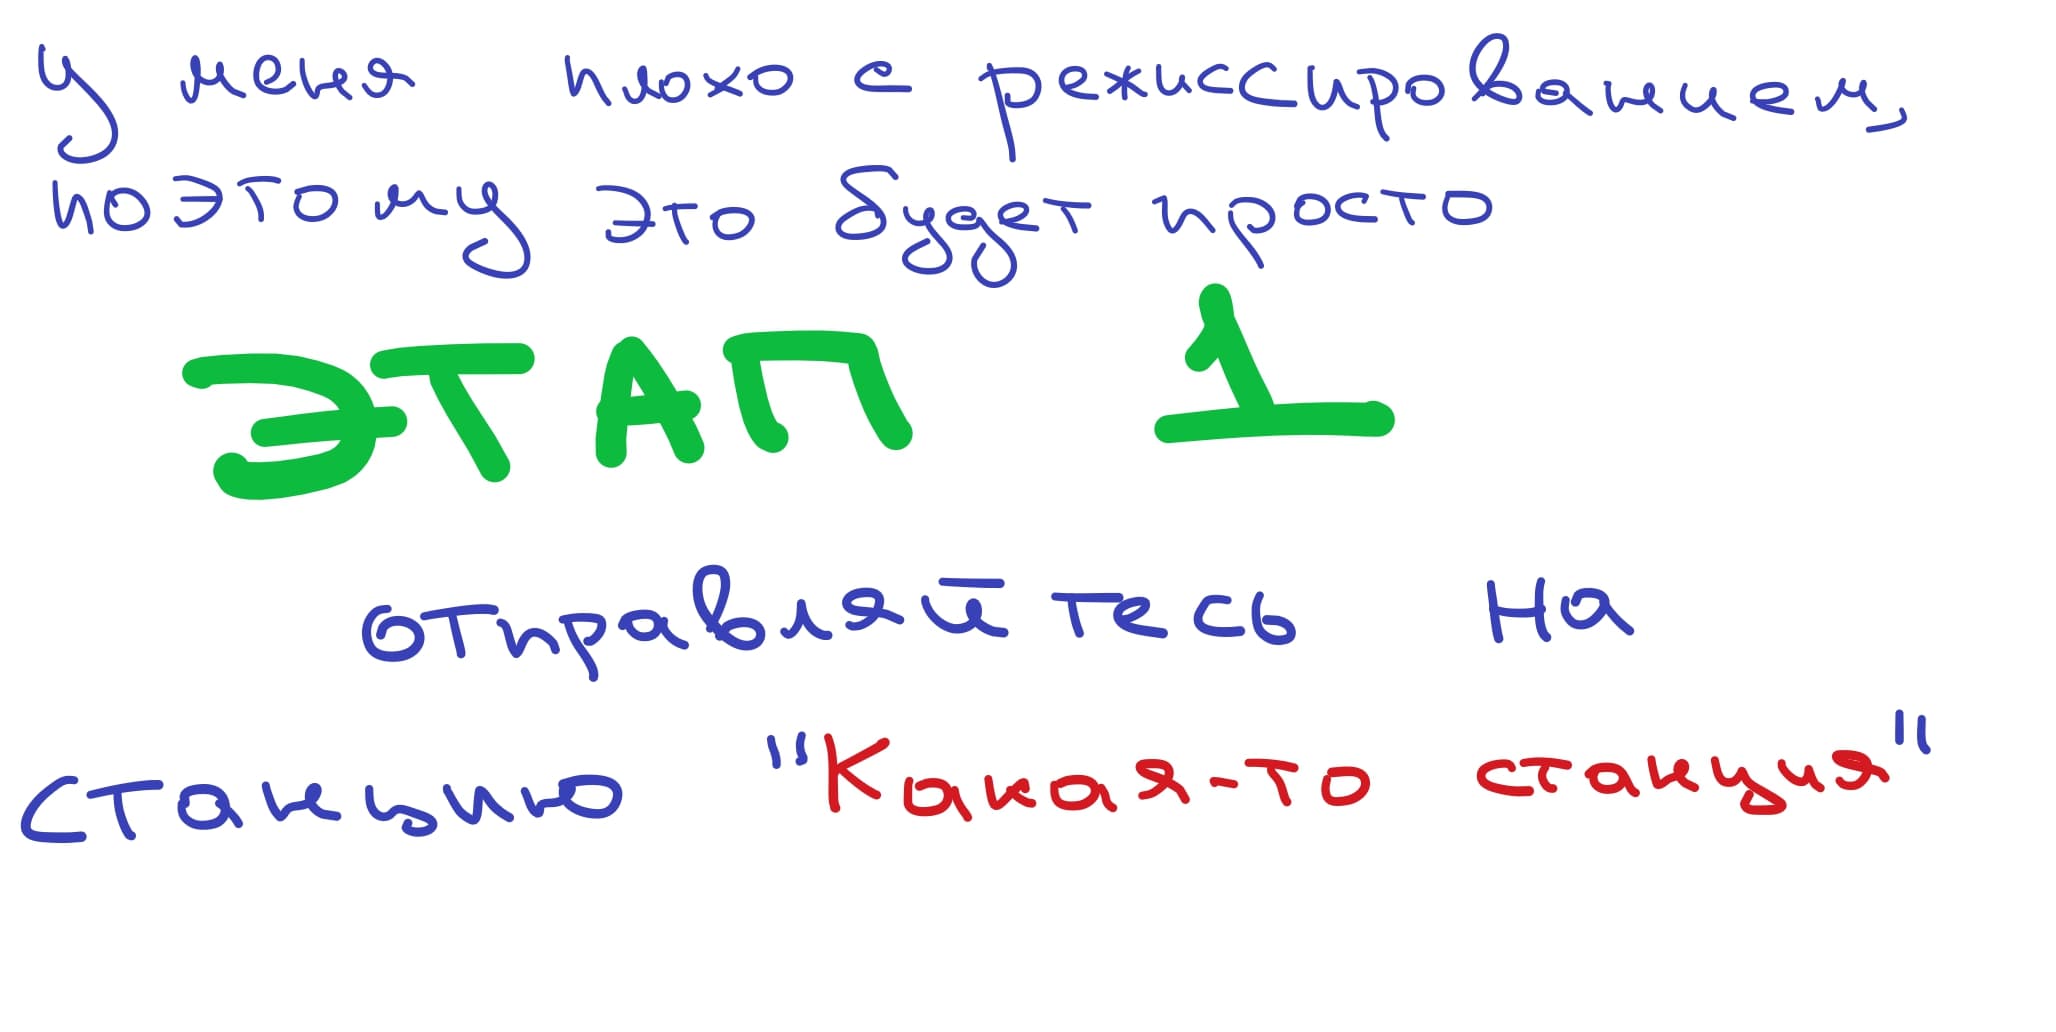 У меня плохо с режиссированием,
поэтому это будет просто
ЭТАП 1
отправляйтесь на
станцию "Какая-то станция"